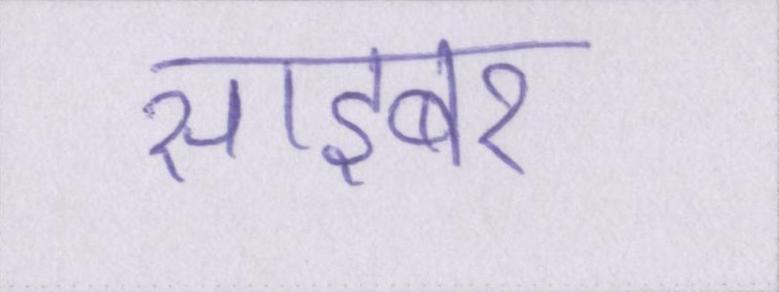 साइबर